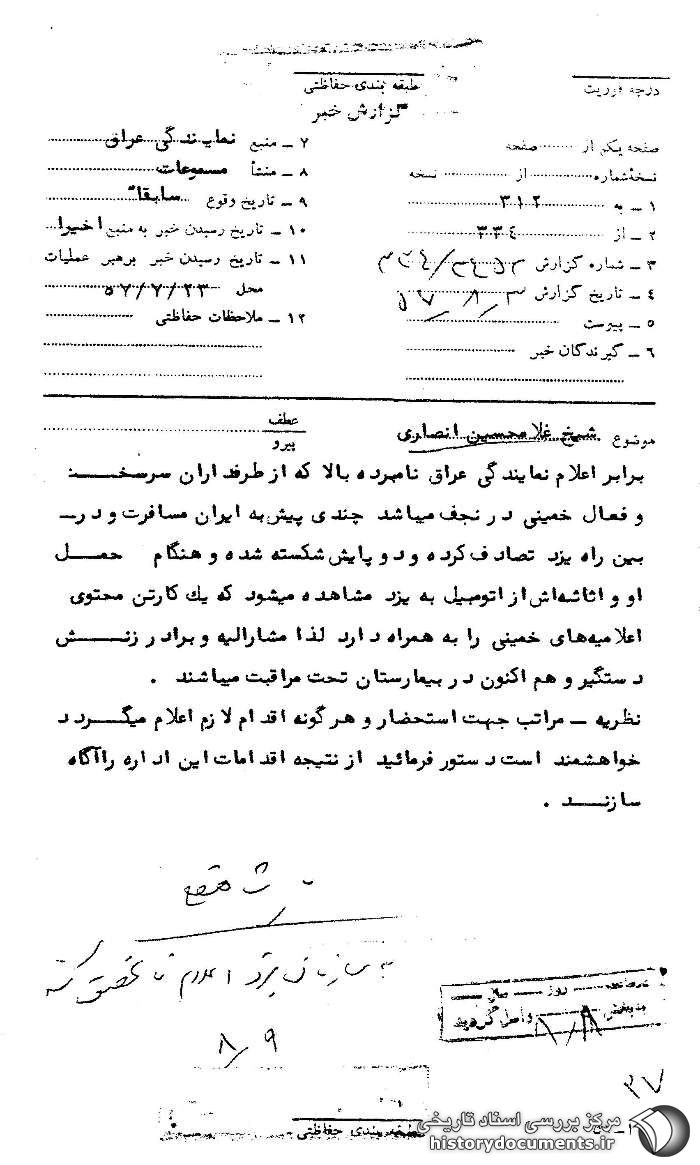 درجه فوریت
طبقه بندی حفاظتی
گزارش خبر
صفحه یکم از ........ صفحه
نسخهٔ شماره ........ از ........ نسخه
۱ ـ به ۳۱۲
۲ ـ از ۳۳۴
۳ ـ شماره گزارش
۴ ـ تاریخ گزارش ۵۷/۸/۳
۵ ـ پیوست
۶ ـ گیرندگان خبر
۷ ـ منبع نمایندگی عراق
۸ ـ منشأ مسموعات
۹ ـ تاریخ وقوع سابقاً
۱۰ ـ تاریخ رسیدن خبر به منبع اخیراً
۱۱ ـ تاریخ رسیدن خبر برهبر عملیات
محل ۵۷/۷/۲۳
۱۲ ـ ملاحظات حفاظتی
موضوع شیخ غلامحسین انصاری
عطف
پیرو
برابر اعلام نمایندگی عراق نامبرده بالا که از طرفداران سرسخت
و فعال خمینی در نجف میباشد چندی پیش به ایران مسافرت و در
بین راه یزد تصادف کرده و دو پایش شکسته شده و هنگام حمل
او و اثاثه‌اش از اتومبیل به یزد مشاهده میشود که یك کارتن محتوی
اعلامیه‌های خمینی را به همراه دارد لذا مشارالیه و برادر زنش
دستگیر و هم اکنون در بیمارستان تحت مراقبت میباشند .
نظریه ـ مراتب جهت استحضار و هرگونه اقدام لازم اعلام میگردد
خواهشمند است دستور فرمائید از نتیجه اقدامات این اداره را آگاه
سازند .
به سازمان یزد اعلام تا تحقیق کنند
۸/۹
روز
به بخش واصل گردید
۸/۸
۳۷
طبقه بندی حفاظتی
مرکز بررسی اسناد تاریخی
historydocuments.ir